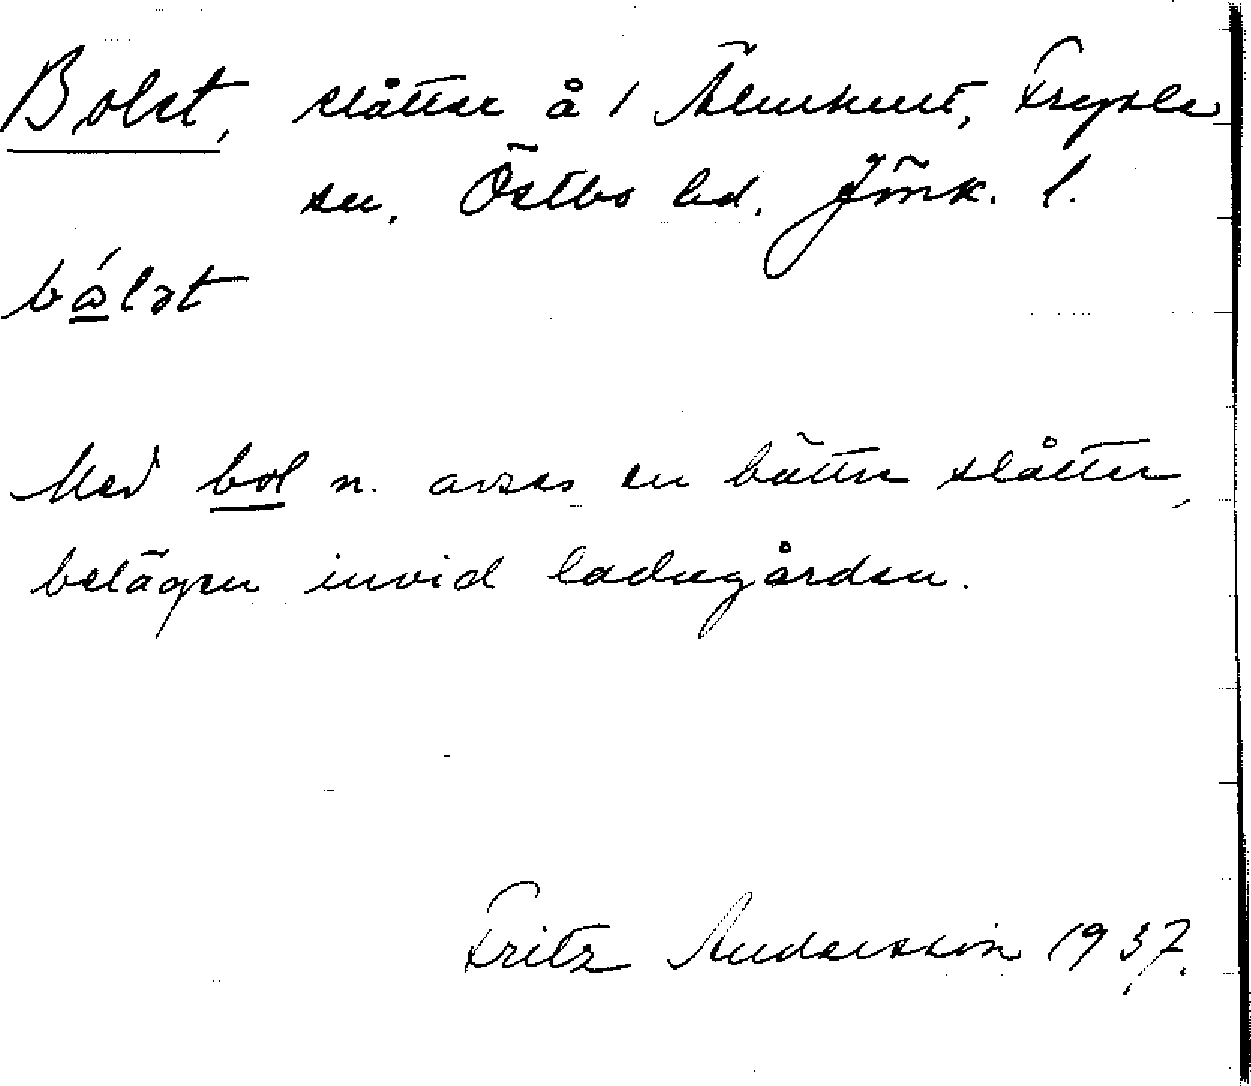 Bolet, slåtter å 1 Älmhult, Fryele
sn. Östbo hd. Jönk. l.
bólət
Med bol n. avses en bättre slåtter,
belägen invid ladugården.
Fritz Andersson 1937.